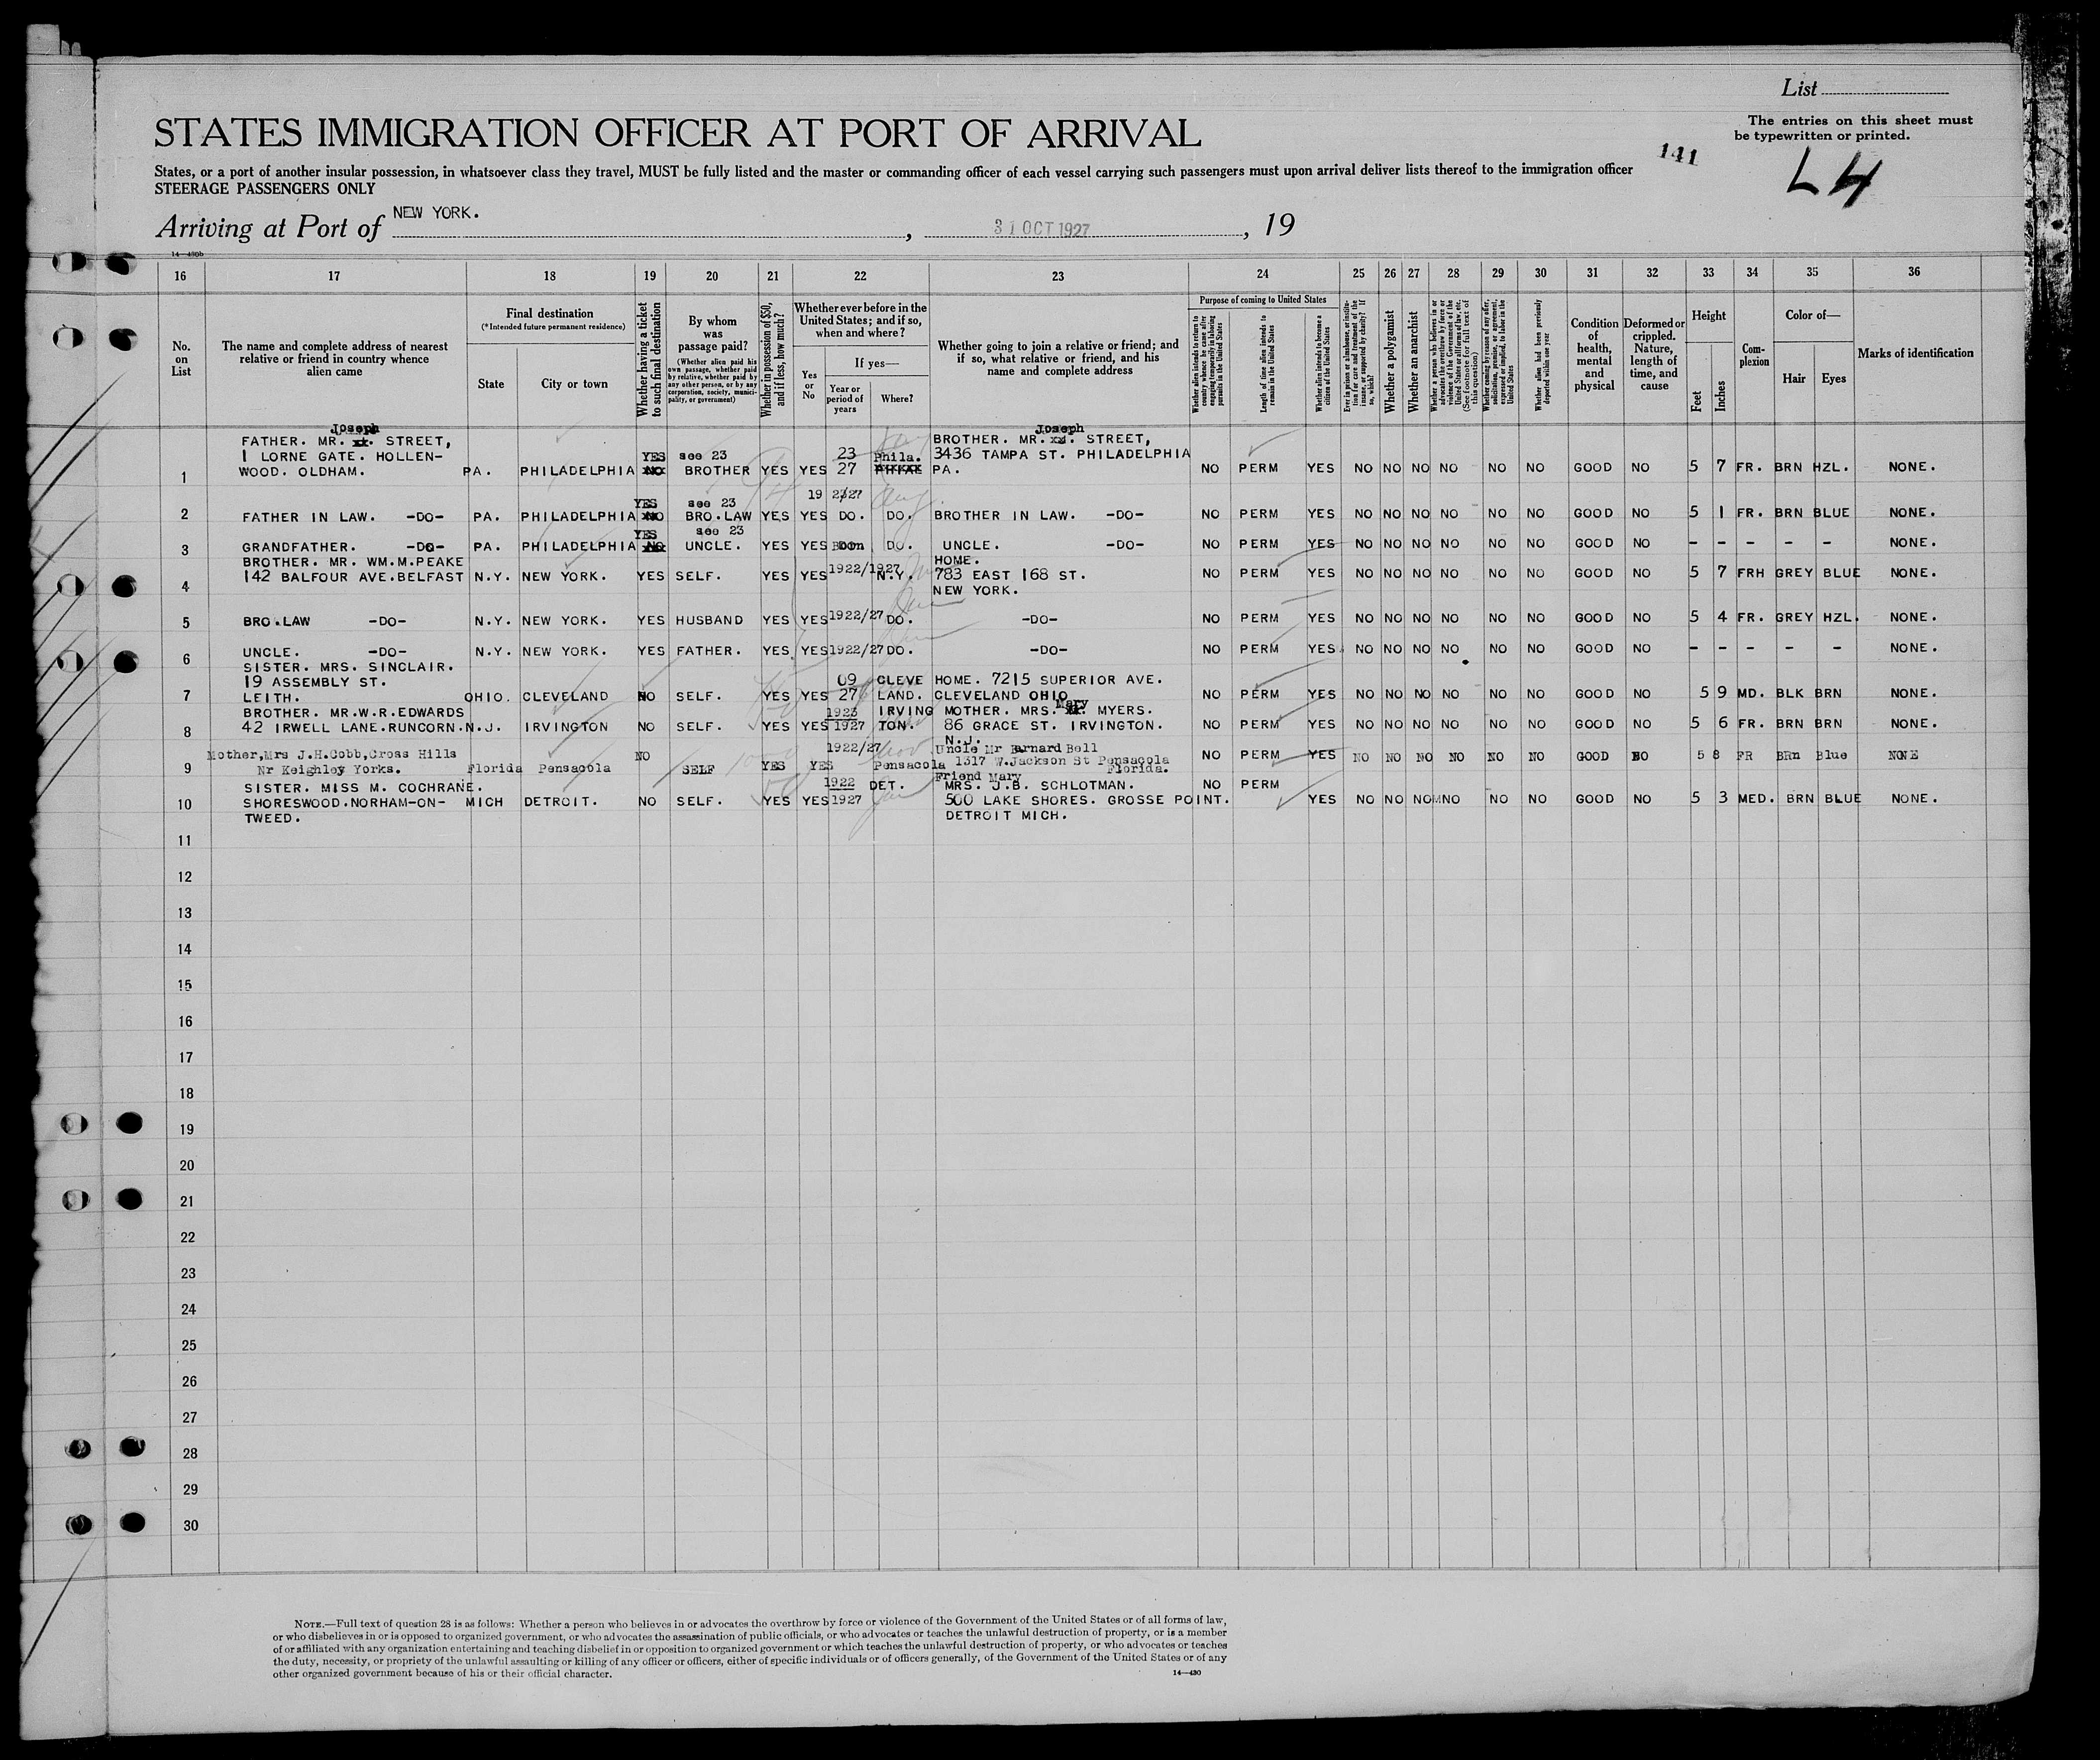 List
The entries on this sheet must
be typewritten or printed.
STATES IMMIGRATION OFFICER AT PORT OF ARRIVAL
141
L4
States, or a port of another insular possession, in whatsoever class they travel, MUST be fully listed and the master or commanding officer of each vessel carrying such passengers must upon arrival deliver lists thereof to the immigration officer
STEERAGE PASSENGERS ONLY
Arriving at Port of NEW YORK. , 31 OCT 1927 , 19
14—430b
16 17 18 19 20 21 22 23 24 25 26 27 28 29 30 31 32 33 34 35 36
No. on List
The name and complete address of nearest relative or friend in country whence alien came
Final destination
(*Intended future permanent residence)
State
City or town
Whether having a ticket to such final destination
By whom was passage paid?
(Whether alien paid his own passage, whether paid by relative, whether paid by any other person, or by any corporation, society, municipality, or government)
Whether in possession of $50, and if less, how much?
Whether ever before in the United States; and if so, when and where?
Yes or No
If yes—
Year or period of years
Where?
Whether going to join a relative or friend; and if so, what relative or friend, and his name and complete address
Purpose of coming to United States
Whether alien intends to return to country whence he came after engaging temporarily in laboring pursuits in the United States
Length of time alien intends to remain in the United States
Whether alien intends to become a citizen of the United States
Ever in prison or almshouse, or institution for care and treatment of the insane, or supported by charity? If so, which?
Whether a polygamist
Whether an anarchist
Whether a person who believes in or advocates the overthrow by force or violence of the Government of the United States or all forms of law, etc. (See footnote for full text of this question)
Whether coming by reason of any offer, solicitation, promise, or agreement, expressed or implied, to labor in the United States
Whether alien had been previously deported within one year
Condition of health, mental and physical
Deformed or crippled. Nature, length of time, and cause
Height
Feet
Inches
Complexion
Color of—
Hair
Eyes
Marks of identification
Joseph Joseph
FATHER. MR. STREET, BROTHER. MR. STREET,
1 LORNE GATE. HOLLEN- YES see 23 23 Phila. 3436 TAMPA ST. PHILADELPHIA
1 WOOD. OLDHAM. PA. PHILADELPHIA NO BROTHER YES YES 27 PA. NO PERM YES NO NO NO NO NO NO GOOD NO 5 7 FR. BRN HZL. NONE.
YES see 23 19 23/27
2 FATHER IN LAW. -DO- PA. PHILADELPHIA NO BRO.LAW YES YES DO. DO. BROTHER IN LAW. -DO- NO PERM YES NO NO NO NO NO NO GOOD NO 5 1 FR. BRN BLUE NONE.
YES see 23
3 GRANDFATHER. -DO- PA. PHILADELPHIA NO UNCLE. YES YES Born DO. UNCLE. -DO- NO PERM YES NO NO NO NO NO NO GOOD NO - - - - - NONE.
BROTHER. MR. WM.M.PEAKE HOME.
4 142 BALFOUR AVE.BELFAST N.Y. NEW YORK. YES SELF. YES YES 1922/1927 N.Y. 783 EAST 168 ST. NO PERM YES NO NO NO NO NO NO GOOD NO 5 7 FRH GREY BLUE NONE.
NEW YORK.
5 BRO.LAW -DO- N.Y. NEW YORK. YES HUSBAND YES YES 1922/27 DO. -DO- NO PERM YES NO NO NO NO NO NO GOOD NO 5 4 FR. GREY HZL. NONE.
6 UNCLE. -DO- N.Y. NEW YORK. YES FATHER. YES YES 1922/27 DO. -DO- NO PERM YES NO NO NO NO NO NO GOOD NO - - - - - NONE.
SISTER. MRS. SINCLAIR.
19 ASSEMBLY ST. 09 CLEVE HOME. 7215 SUPERIOR AVE.
7 LEITH. OHIO. CLEVELAND NO SELF. YES YES 27 LAND. CLEVELAND OHIO NO PERM YES NO NO NO NO NO NO GOOD NO 5 9 MD. BLK BRN NONE.
BROTHER. MR.W.R.EDWARDS 1923 IRVING MOTHER. MRS. Mary MYERS.
8 42 IRWELL LANE.RUNCORN. N.J. IRVINGTON NO SELF. YES YES 1927 TON. 86 GRACE ST. IRVINGTON. NO PERM YES NO NO NO NO NO NO GOOD NO 5 6 FR. BRN BRN NONE.
N.J.
Mother,Mrs J.H.Cobb,Cross Hills NO 1922/27 Uncle Mr Barnard Bell
9 Nr Keighley Yorks. Florida Pensacola SELF YES YES Pensacola 1317 W.Jackson St Pensacola Florida. NO PERM YES NO NO NO NO NO NO GOOD NO 5 8 FR BRn Blue NONE
SISTER. MISS M. COCHRANE. 1922 DET. Friend Mary MRS. J.B. SCHLOTMAN. NO PERM
10 SHORESWOOD.NORHAM-ON- MICH DETROIT. NO SELF. YES YES 1927 500 LAKE SHORES. GROSSE POINT. YES NO NO NO NO NO NO GOOD NO 5 3 MED. BRN BLUE NONE.
TWEED. DETROIT MICH.
11
12
13
14
15
16
17
18
19
20
21
22
23
24
25
26
27
28
29
30
NOTE.—Full text of question 28 is as follows: Whether a person who believes in or advocates the overthrow by force or violence of the Government of the United States or of all forms of law,
or who disbelieves in or is opposed to organized government, or who advocates the assassination of public officials, or who advocates or teaches the unlawful destruction of property, or is a member
of or affiliated with any organization entertaining and teaching disbelief in or opposition to organized government or which teaches the unlawful destruction of property, or who advocates or teaches
the duty, necessity, or propriety of the unlawful assaulting or killing of any officer or officers, either of specific individuals or of officers generally, of the Government of the United States or of any
other organized government because of his or their official character.
14—430